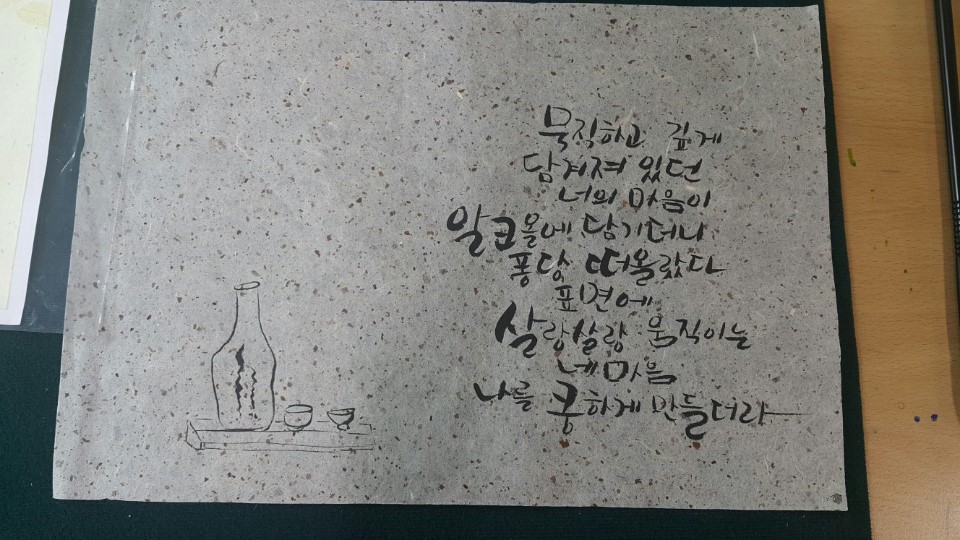 묵직하고 깊게
담겨져 있던
너의 마음이
알코올에 담기더니
퐁당 떠올랐다
표면에
살랑살랑 움직이는
네 마음
나를 쿵하게 만들더라